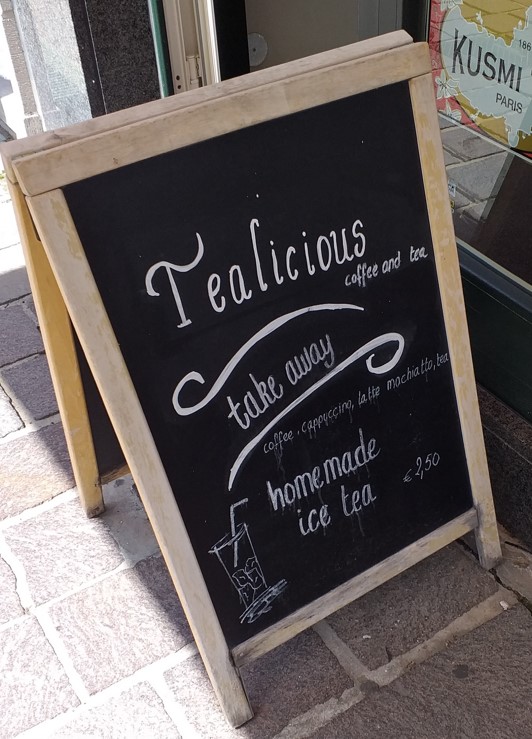 Tealicious
coffee and tea
take away
coffee, cappuccino, latte machiatto, tea
homemade
ice tea
€ 2,50
186
KUSMI
PARIS